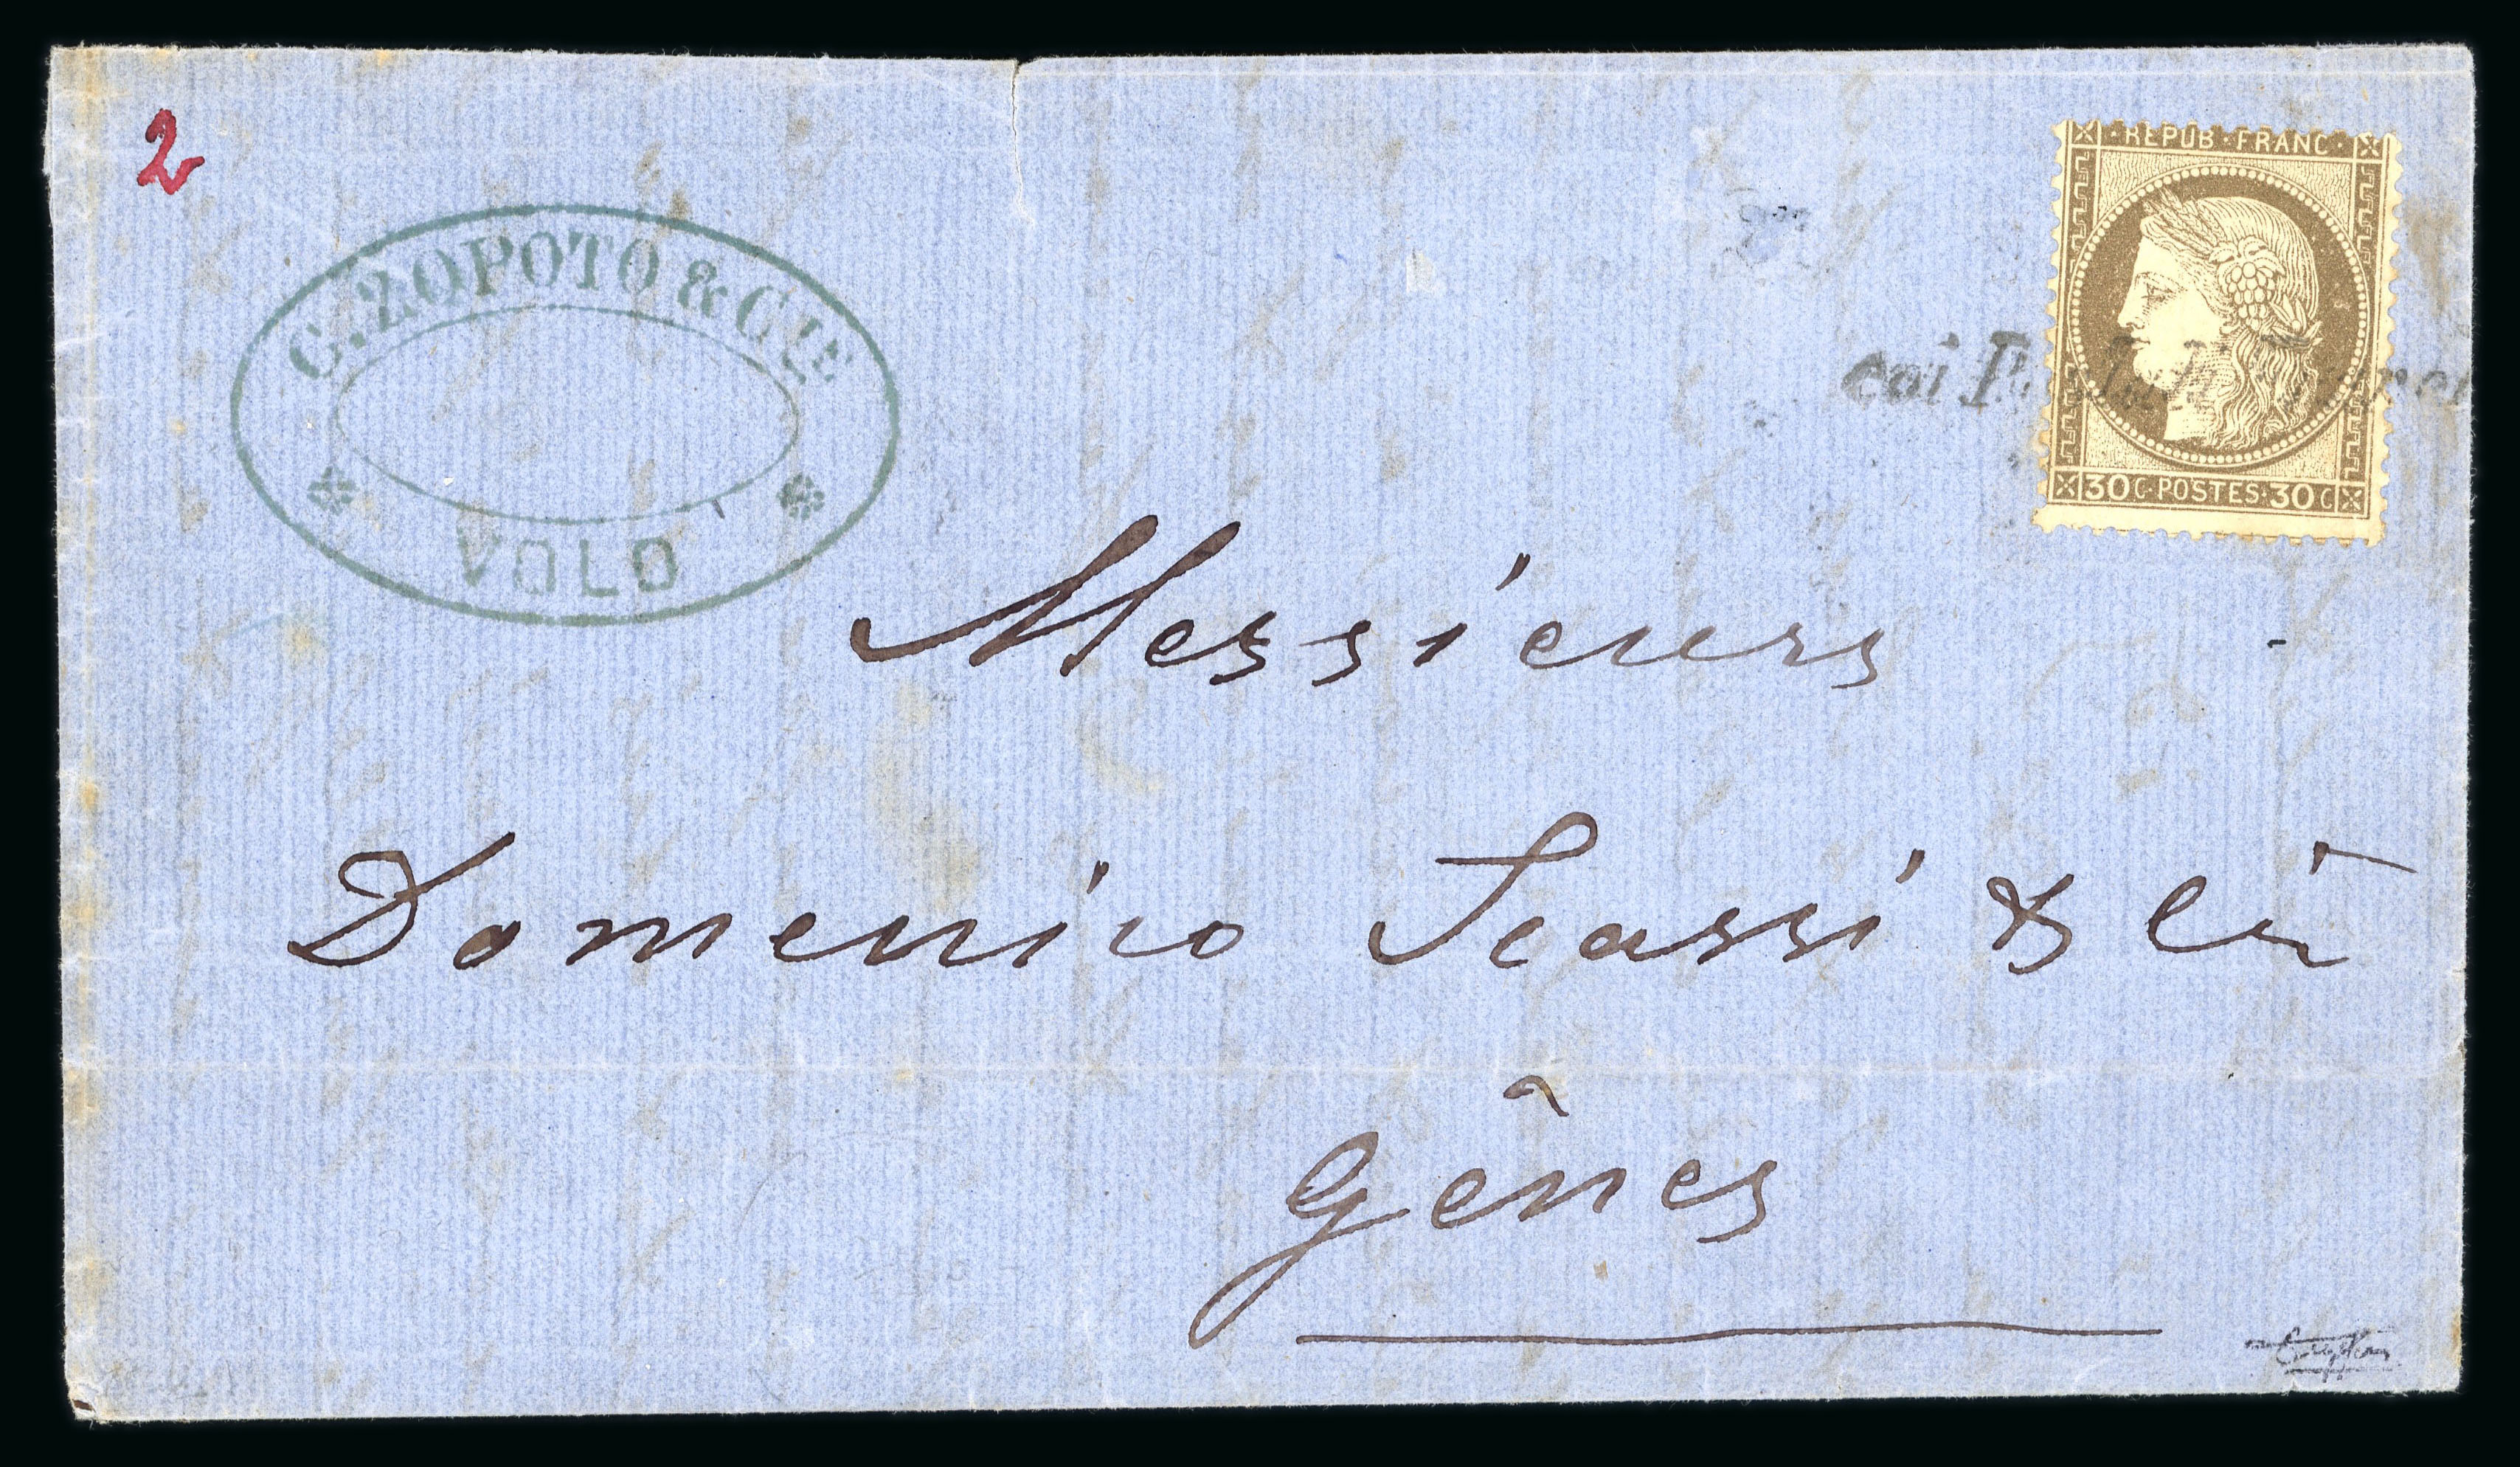 2
C. ZOPOTO & CIE
VOLO
REPUB · FRANC ·
coi
30C · POSTES · 30C
Messieurs
Domenico Scassi & Cie
Gênes